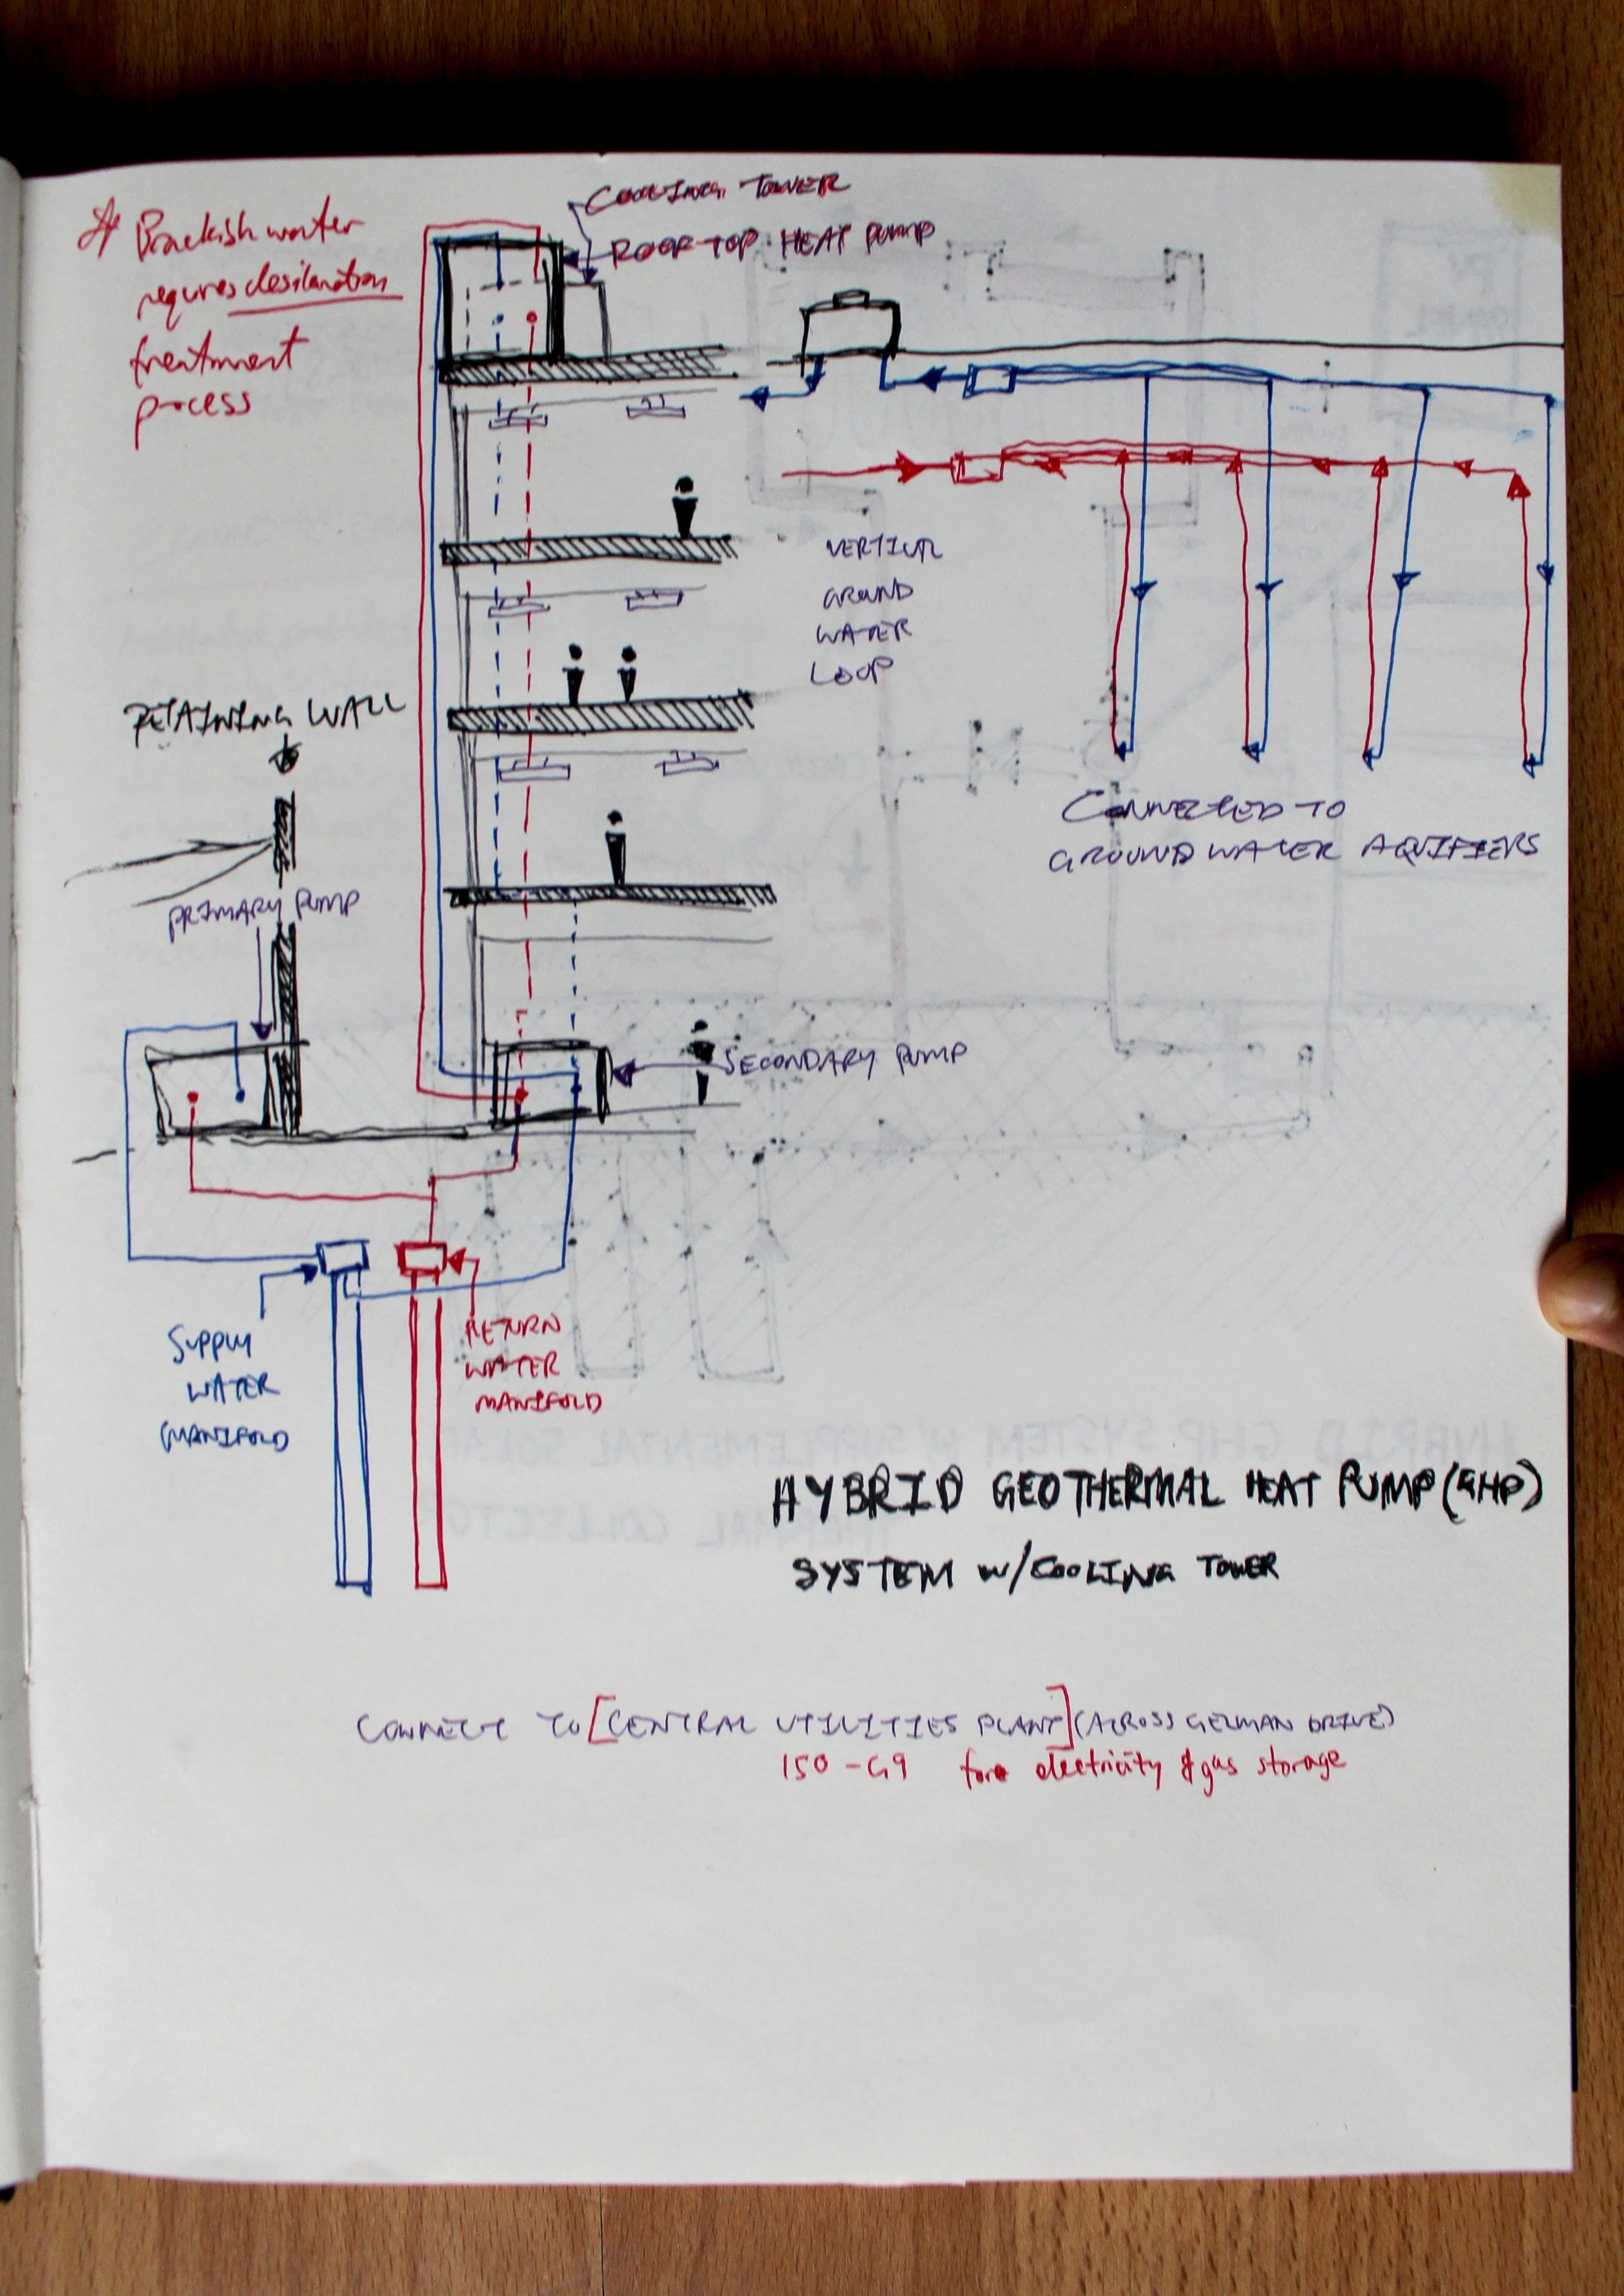 * Brackish water
requires desilanation
treatment
process
COOLING TOWER
ROOF TOP HEAT PUMP
VERTICAL
GROUND
WATER
LOOP
RETAINING WALL
CONNECTED TO
GROUND WATER AQUIFIERS
PRIMARY PUMP
SECONDARY PUMP
SUPPLY
WATER
MANIFOLD
RETURN
WATER
MANIFOLD
HYBRID GEOTHERMAL HEAT PUMP (GHP)
SYSTEM W/COOLING TOWER
CONNECT TO [CENTRAL UTILITIES PLANT] (ACROSS GERMAN DRIVE)
150-G9 for electricity & gas storage